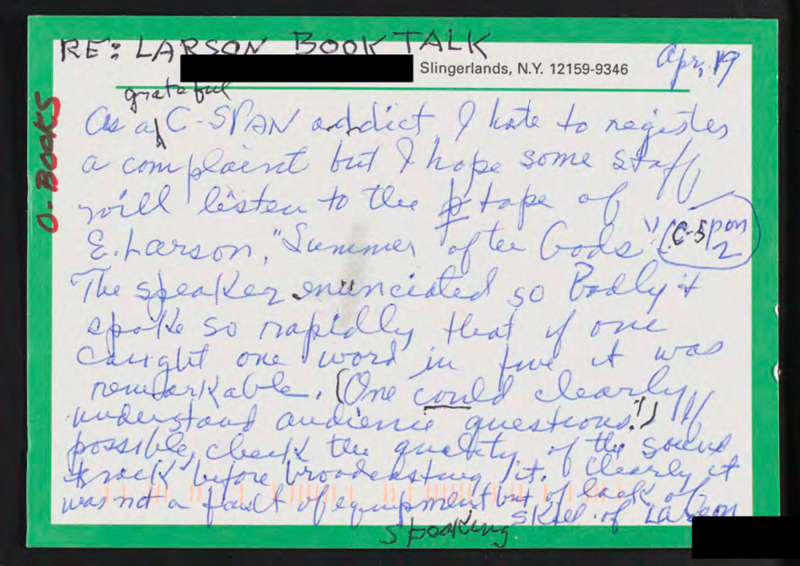 RE: LARSON BOOK TALK
Slingerlands, N.Y. 12159-9346
Apr, 19
O-BOOKS
grateful
As a C-SPAN addict I hate to register
a complaint but I hope some staff
will listen to the tape of
E. Larson, "Summer of the Gods" (C-Span
2
The speaker enunciated so Badly &
spoke so rapidly that if one
caught one word in five it was
remarkable. (One could clearly
understand audience questions!) If
possible, check the quality of the sound
track before broadcasting it. Clearly it
was not a fault of equipment but of lack of
speaking skill of Larson